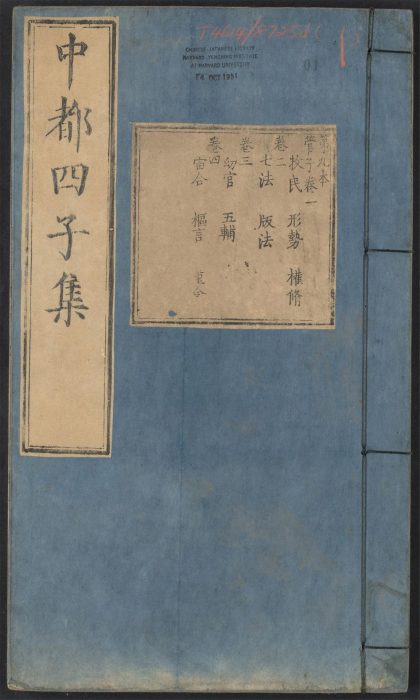 中都四子集
CHINESE-JAPANESE LIBRARY
HARVARD-YENCHING INSTITUTE
AT HARVARD UNIVERSITY
OCT 1951
01
第九本
管子卷一
牧民 形勢 權脩
卷二
七法 版法
卷三
幼官 五輔
卷四
宙合 樞言